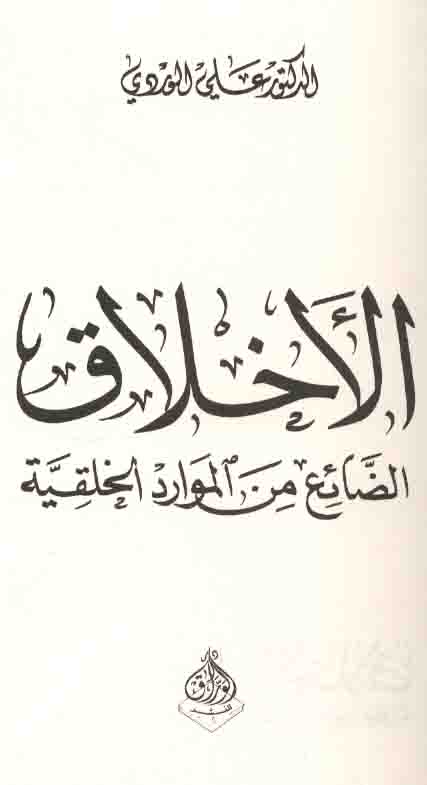 الدكتور علي الوردي
الأخلاق
الضَّائع مِنَ الموارد الخلقيَّة
دار
الوراق
للنشر